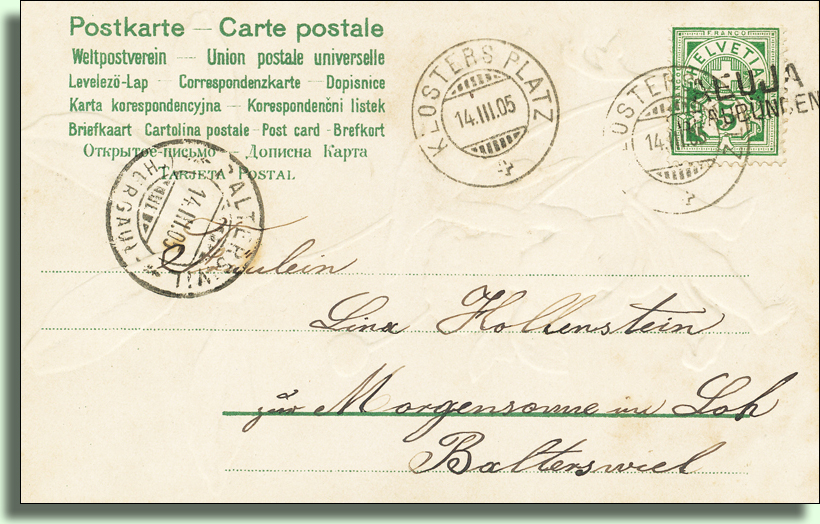 Postkarte — Carte postale
Weltpostverein — Union postale universelle
Levelezö-Lap — Correspondenzkarte — Dopisnice
Karta korespondencyjna — Korespondenční listek
Briefkaart Cartolina postale - Post card - Brefkort
Открытое письмо — Дописна Карта
TARJETA POSTAL
KLOSTERS PLATZ
14.III.05
FRANCO
HELVETIA
5
KLOSTERS
14.III.05
BALTERSWIL
14.III.05
(THURGAU)
Fräulein
Lina Hollenstein
zur Morgensonne im Loh
Balterswiel